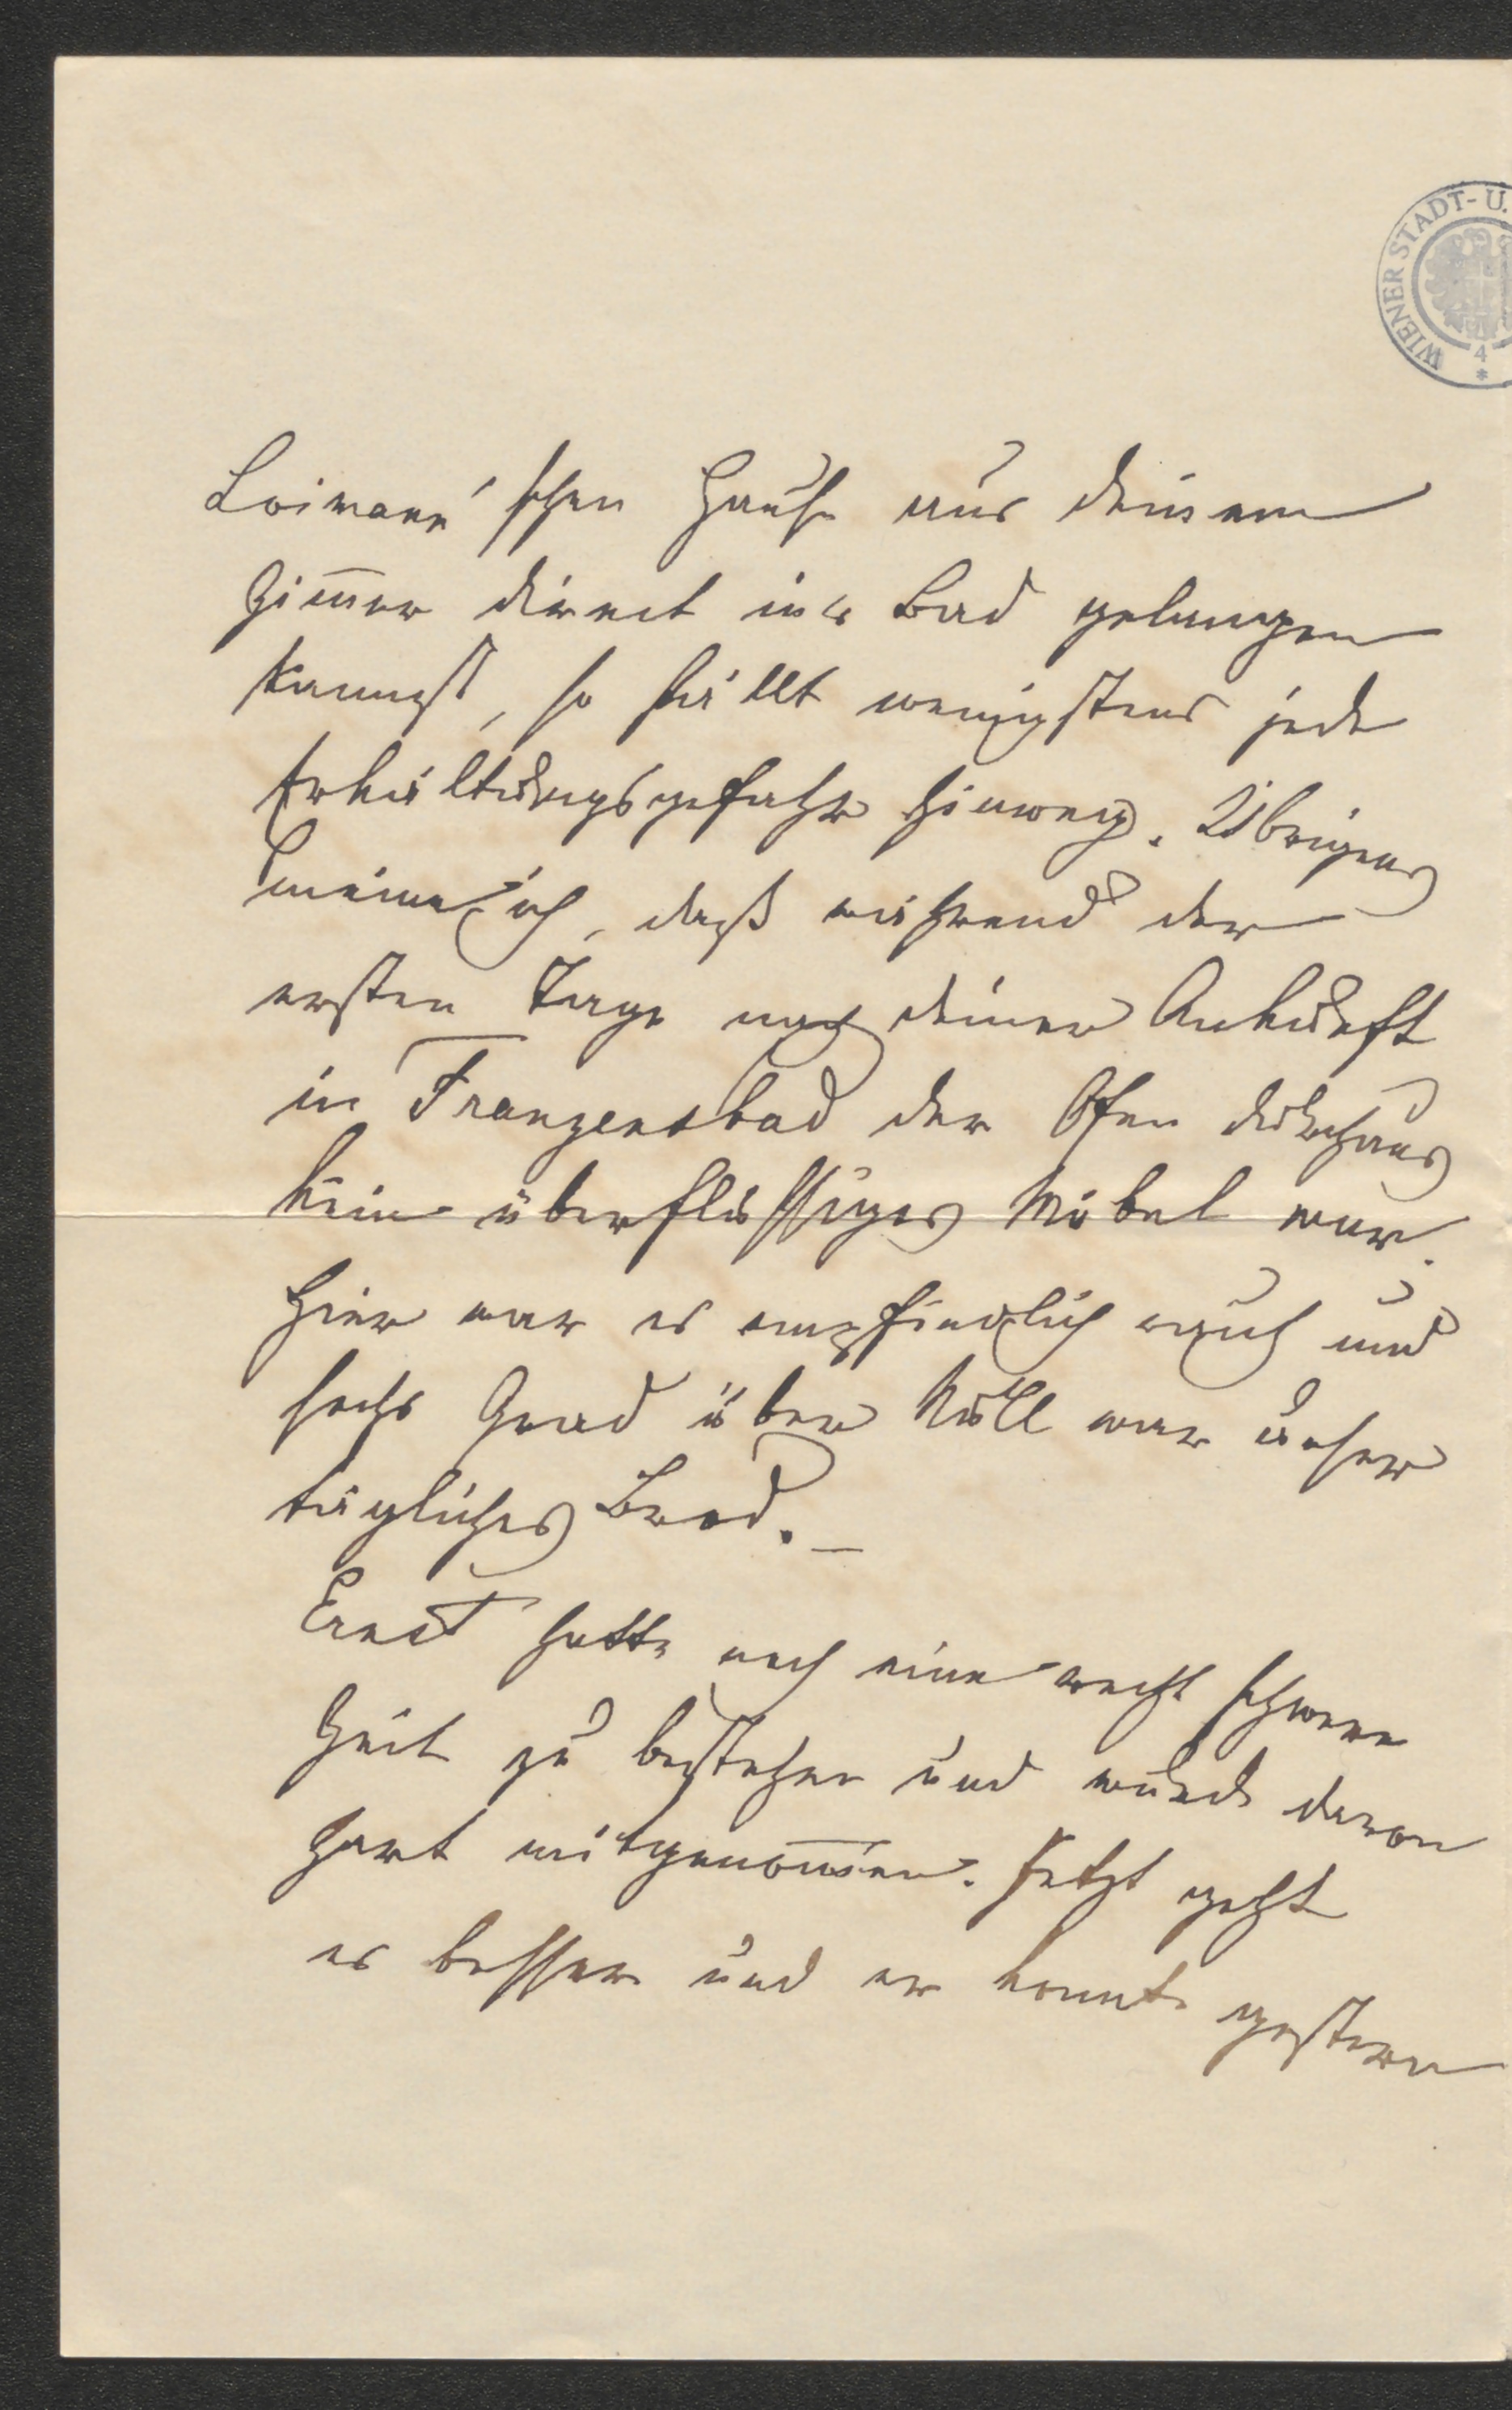 WIENER STADT- U.
4
Loimann'schen Hause aus deinem
Zim̅er direct in's Bad gelangen
kannst, so fällt wenigstens jede
Erkältungsgefahr hinweg. Übrigens
meine ich, daß während der
ersten Tage nach deiner Ankunft
in Franzensbad der Ofen durchaus
kein überflüssiges Möbel war.
Hier war es empfindlich rauh und
sechs Grad über Null war unser
tägliches Brod. _
Ernst hatte noch eine recht schwere
Zeit zu bestehen und wurde davon
hart mitgenom̅en. Jetzt geht
es besser und er konnte gestern